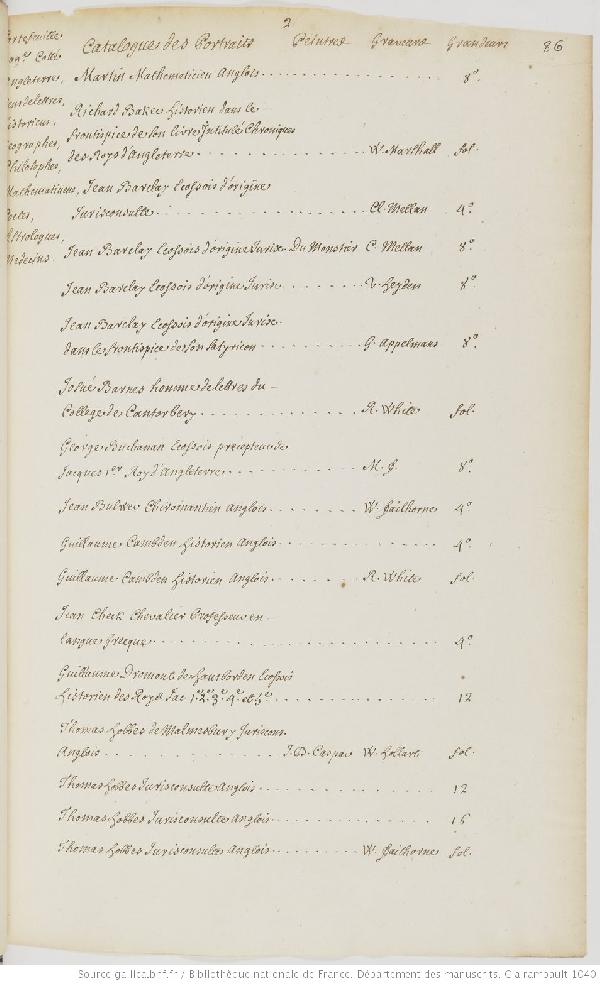 2
Catalogue des Portraits Peintres Graveurs Grandeurs 86
Martin Mathematicien Anglois 8º.
Richard Baker historien dans le
frontispice de son livre Intitulé Chroniques
des Roys d'Angleterre W. Marshall fol.
Jean Barclay Ecossois d'origine
Jurisconsulte Cl. Mellan 4º.
Jean Barclay Ecossois d'origine Jurisc. Du Monstier C. Mellan 8º.
Jean Barclay Ecossois d'origine Jurisc. V. Heyden 8º.
Jean Barclay Ecossois d'origine Jurisc.
dans le frontispice de son Satyricon G. Appelmans 8º.
Josué Barnes homme de lettres du
College de Cantorbery R. White fol.
George Buchanan Ecossois precepteur de
Jacques 1er Roy d'Angleterre M. J. 8º.
Jean Bulwer Chiromantien Anglois W. Faithorne 4º.
Guillaume Cambden historien Anglois 4º.
Guillaume Cambden historien Anglois R. White fol.
Jean Check Chevalier Professeur en
langue Grecque 4º.
Guillaume Dromont de Ecossois
historien des Roys Jac 1. 2. 3. 4. et 5. 12
Thomas Hobbes de Malmesbury Juriscons.
Anglois J. B. Caspar W. Hollart fol.
Thomas Hobbes Jurisconsulte Anglois 12
Thomas Hobbes Jurisconsulte Anglois 15
Thomas Hobbes Jurisconsulte Anglois W. Faithorne fol.
portefeuille
Angleterre,
Gens de lettres,
historiens,
Geographes,
Philosophes,
Mathematiciens,
Poetes,
Astrologues,
Medecins.
Source gallica.bnf.fr / Bibliothèque nationale de France. Département des manuscrits. Clairambault 1040